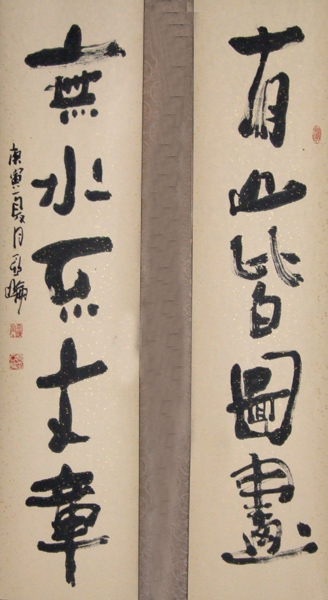 有山皆圖畫
無水不文章
庚寅夏月